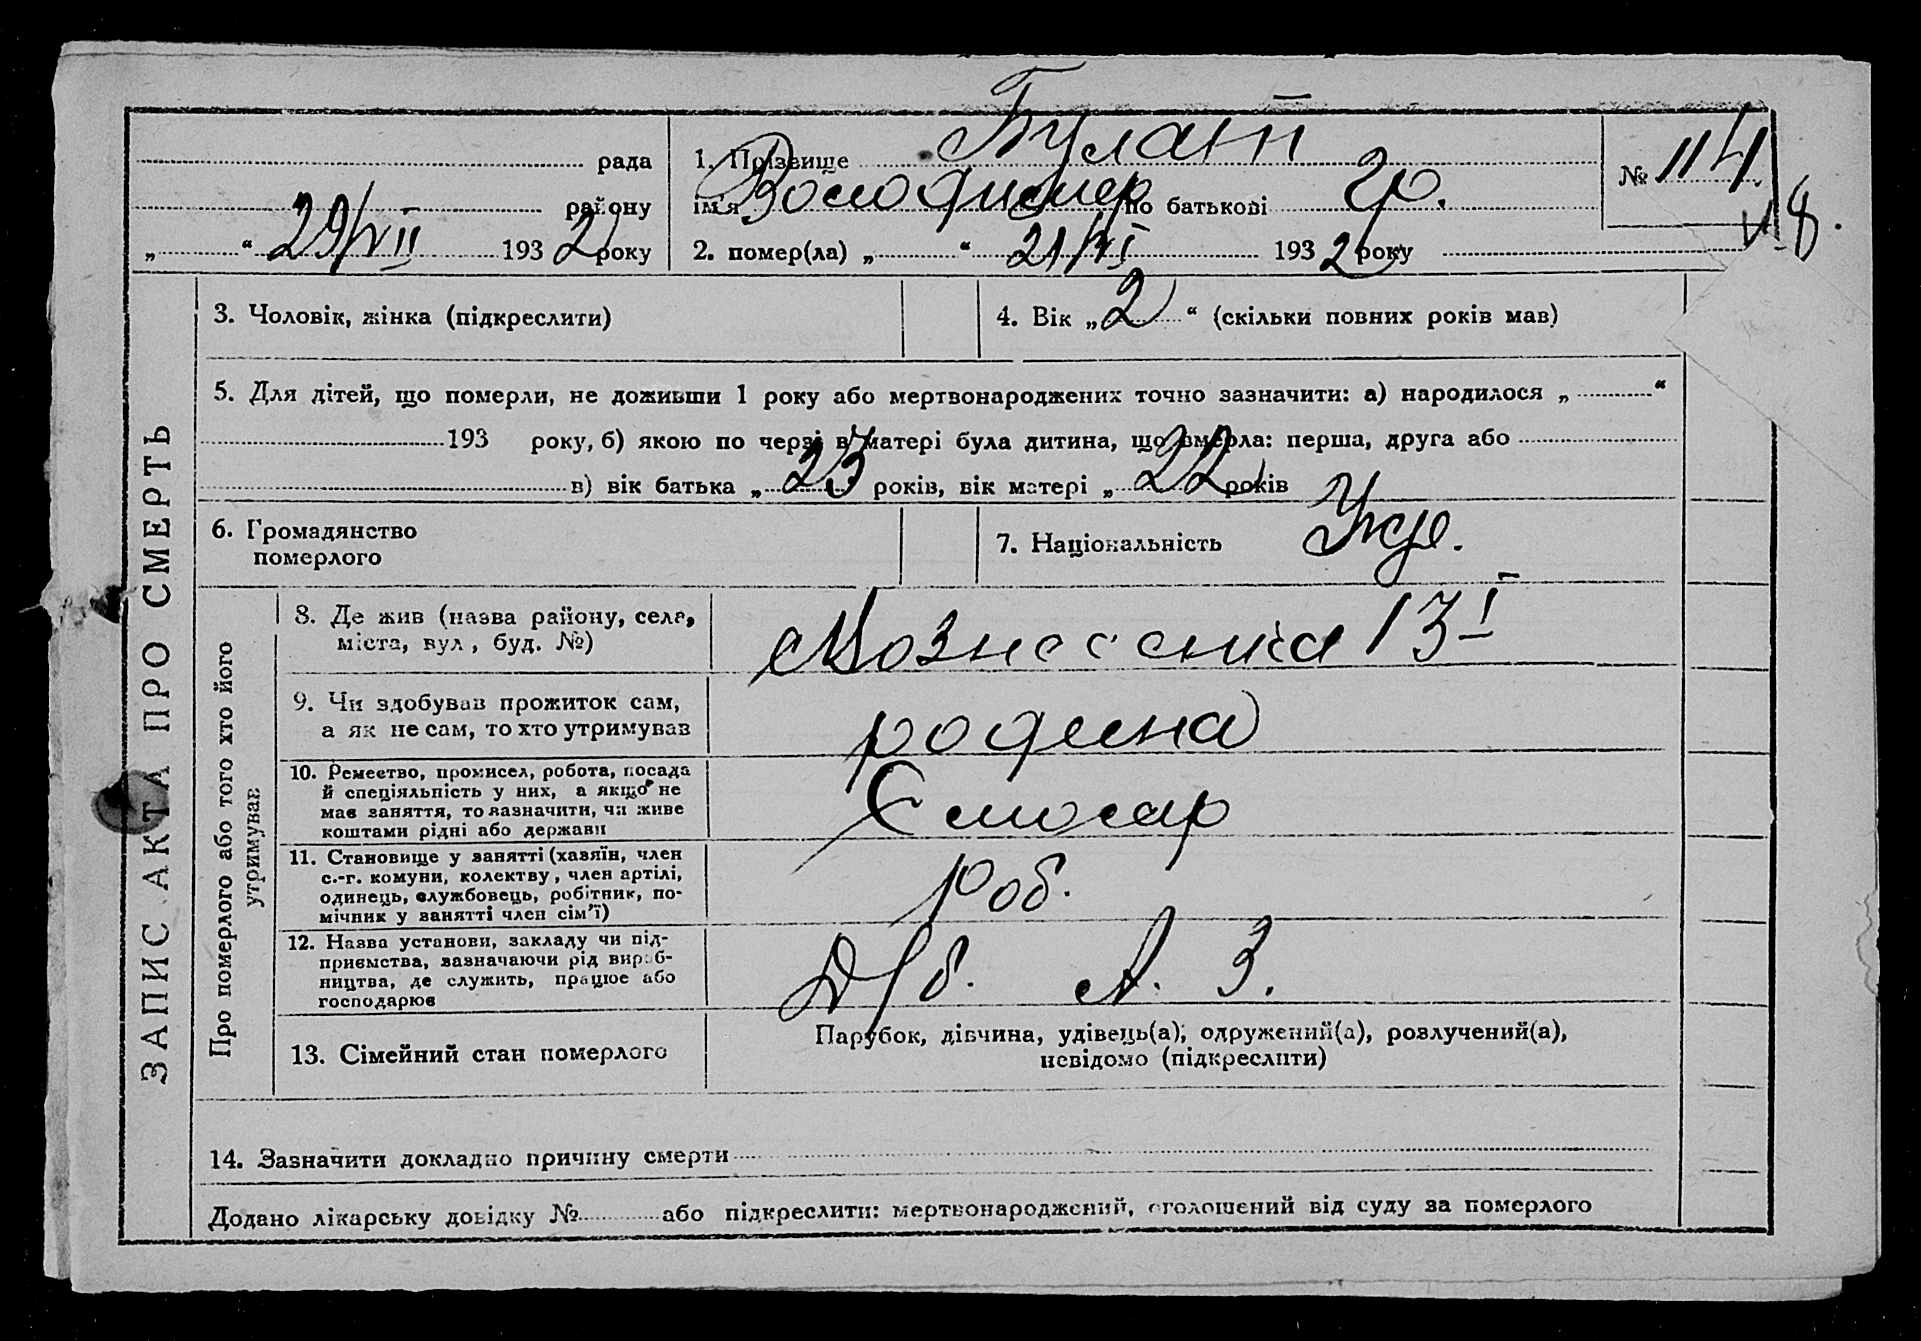 Булат
рада
1. Прізвище
№ 114
району
ім'я Володимир по батькові Гр.
„ “ 29/VII 1932 року
2. помер(ла) „ “ 21/VI 1932 року
18.
ЗАПИС АКТА ПРО СМЕРТЬ
3. Чоловік, жінка (підкреслити)
4. Вік „2“ (скільки повних років мав)
5. Для дітей, що померли, не доживши 1 року або мертвонароджених точно зазначити: а) народилося „ “
193 року, б) якою по черзі в матері була дитина, що вмерла: перша, друга або
в) вік батька „23 років, вік матері „22 років
6. Громадянство
померлого
7. Національність Укр.
Про померлого або того хто його
утримував
8. Де жив (назва району, села,
міста, вул, буд. №)
Вознесенка 13
9. Чи здобував прожиток сам,
а як не сам, то хто утримував
родина
10. Ремество, промисел, робота, посада
й спеціяльність у них, а якщо не
має заняття, то зазначити, чи живе
коштами рідні або держави
Слюсар
11. Становище у занятті (хазяїн, член
с.-г. комуни, колектву, член артілі,
одинець, службовець, робітник, по-
мічник у занятті член сім'ї)
Роб.
12. Назва установи, закладу чи під-
приємства, зазначаючи рід вироб-
ництва, де служить, працює або
господарює
Д/б. А. З.
13. Сімейний стан померлого
Парубок, дівчина, удівець(а), одружений(а), розлучений(а),
невідомо (підкреслити)
14. Зазначити докладно причину смерти
Додано лікарську довідку № або підкреслити: мертвонароджений, оголошений від суду за померлого